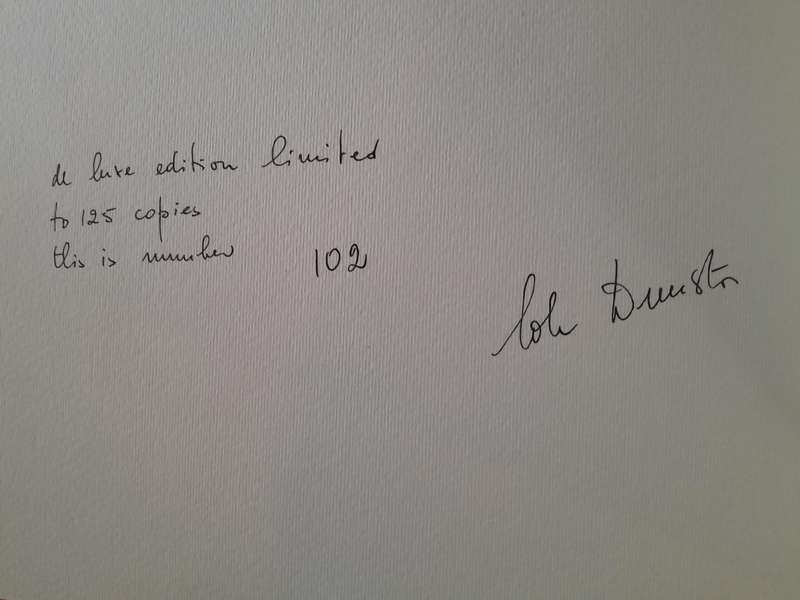 de luxe edition limited
to 125 copies
this is number 102